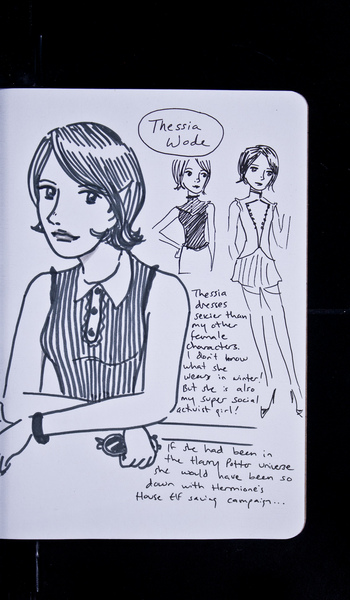 Thessia
Wode
Thessia
dresses
sexier than
my other
female
characters.
I don't know
what she
wears in winter!
But she is also
my super social
activist girl!
If she had been in
the Harry Potter universe
she would have been so
down with Hermione's
House Elf saving campaign...